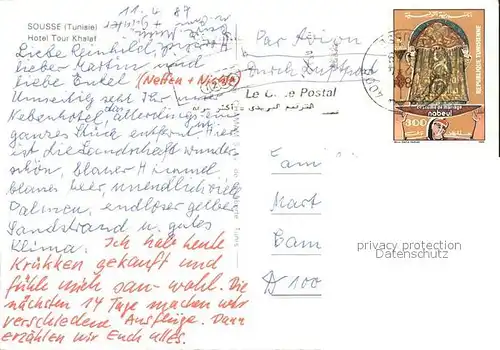 SOUSSE (Tunisie)
Hotel Tour Khalaf
11. 4. 87
Liebe Reinhild,
lieber Martin und
liebe Enkel (Neffen + Nichte)
Umseitig seht Ihr unser
Nebenhotel, allerdings ein
ganzes Stück entfernt. Hier
ist die Landschaft wunder-
schön, blauer Himmel,
blaues Meer, unendlich viele
Palmen, endloser gelber
Sandstrand u. gutes
Klima. Ich hab heute
Krükken gekauft und
fühle mich sau-wohl. Die
nächsten 14 Tage machen wir
verschiedene Ausflüge. Dann
erzählen wir Euch alles.
Par Avion
Durch Luftpost
Le Code Postal
REPUBLIQUE TUNISIENNE
nabeul
300
Fami
Mart
Cam
A 100
privacy protection
Datenschutz